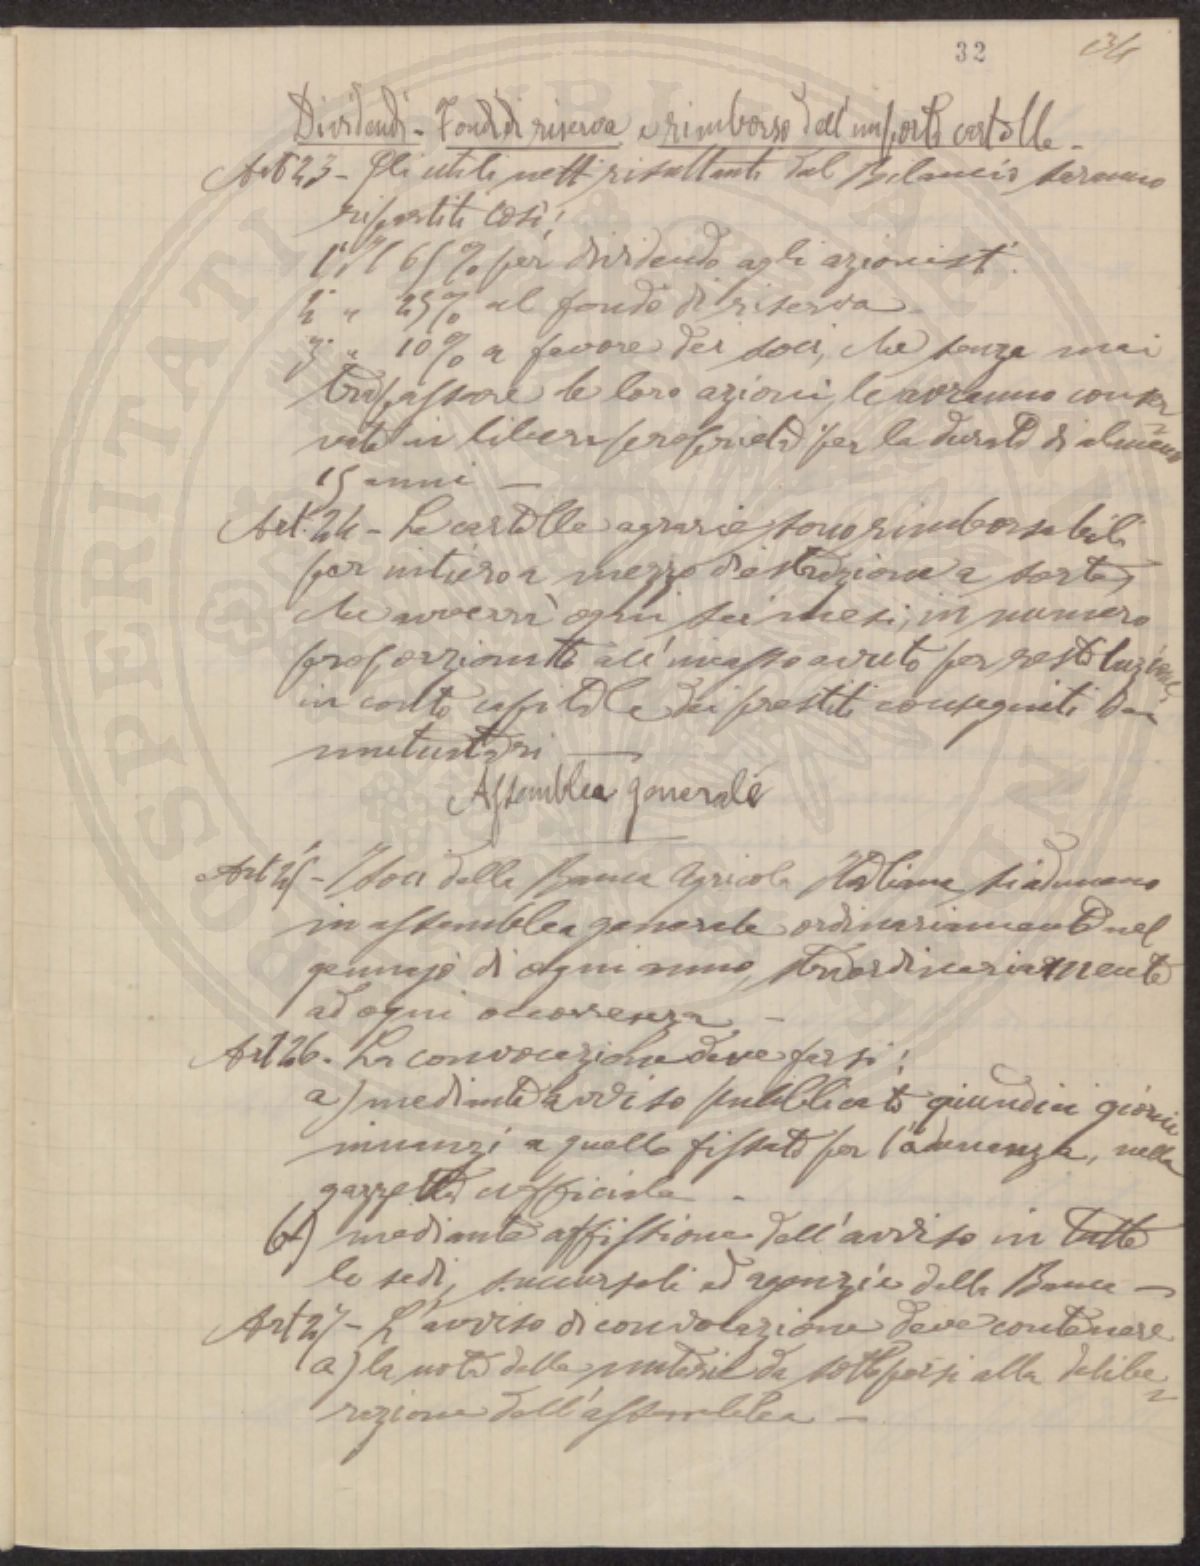 32 34
Dividendi - Fondi di riserva e rimborso dell'importo cartelle -
Art 23 - Gli utili netti risultanti dal Bilancio saranno
ripartiti così:
1° Il 65% per dividendo agli azionisti.
2° " 25% al fondo di riserva
3° " 10% a favore dei soci, che senza mai
trapassare le loro azioni, le avranno conser
vate in libera proprietà per la durata di almeno
15 anni —
Art. 24 - Le cartelle agrarie sono rimborsabili
per intiero a mezzo di estrazione a sorte,
che avverrà ogni sei mesi, in numero
proporzionato all'incasso avuto per restituzione
in conto capitale dei prestiti conseguiti dai
mutuatari —
Assemblea generale
Art 25 - I soci della Banca Agricola Italiana si adunano
in assemblea generale ordinariamente nel
gennajo di ogni anno, straordinariamente
ad ogni occorrenza -
Art 26 - La convocazione deve farsi:
a) mediante avviso pubblicato, quindici giorni
innanzi a quello fissato per l'adunanza, nella
gazzetta ufficiale -
b) mediante affissione dell'avviso in tutte
le sedi, succursali ed agenzie della Banca —
Art 27 - L'avviso di convocazione deve contenere
a) la nota delle materie da sottoporsi alla delibe
razione dell'assemblea —
SPERITATI PUBLICAE